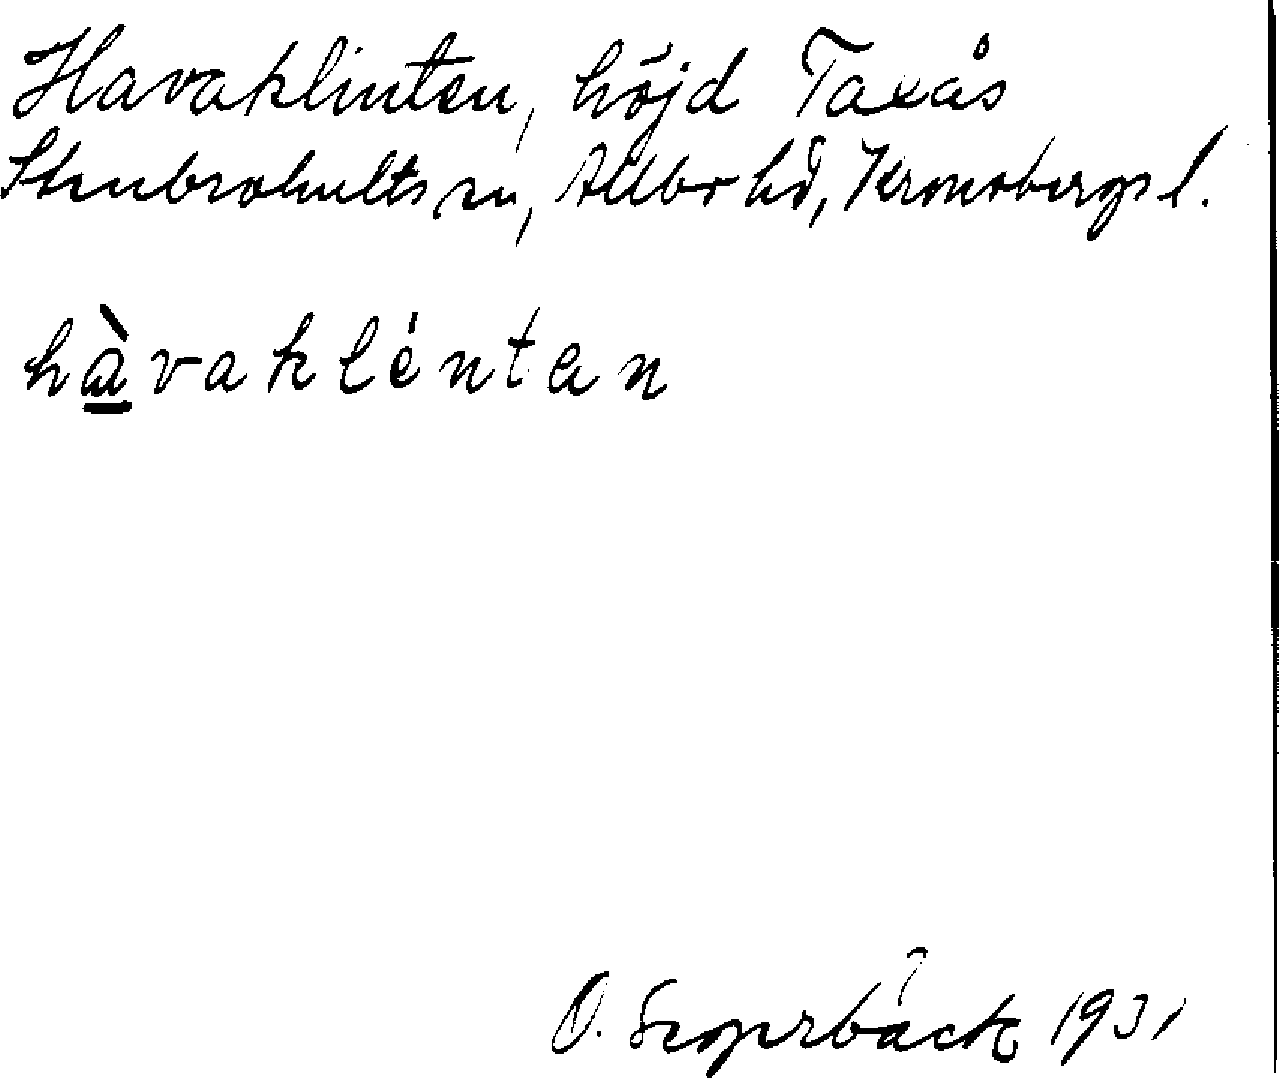 Havaklinten, höjd Taxås
Stenbrohults sn, Allbo hd, Kronobergs l.
hàvakléntan
O. 1931